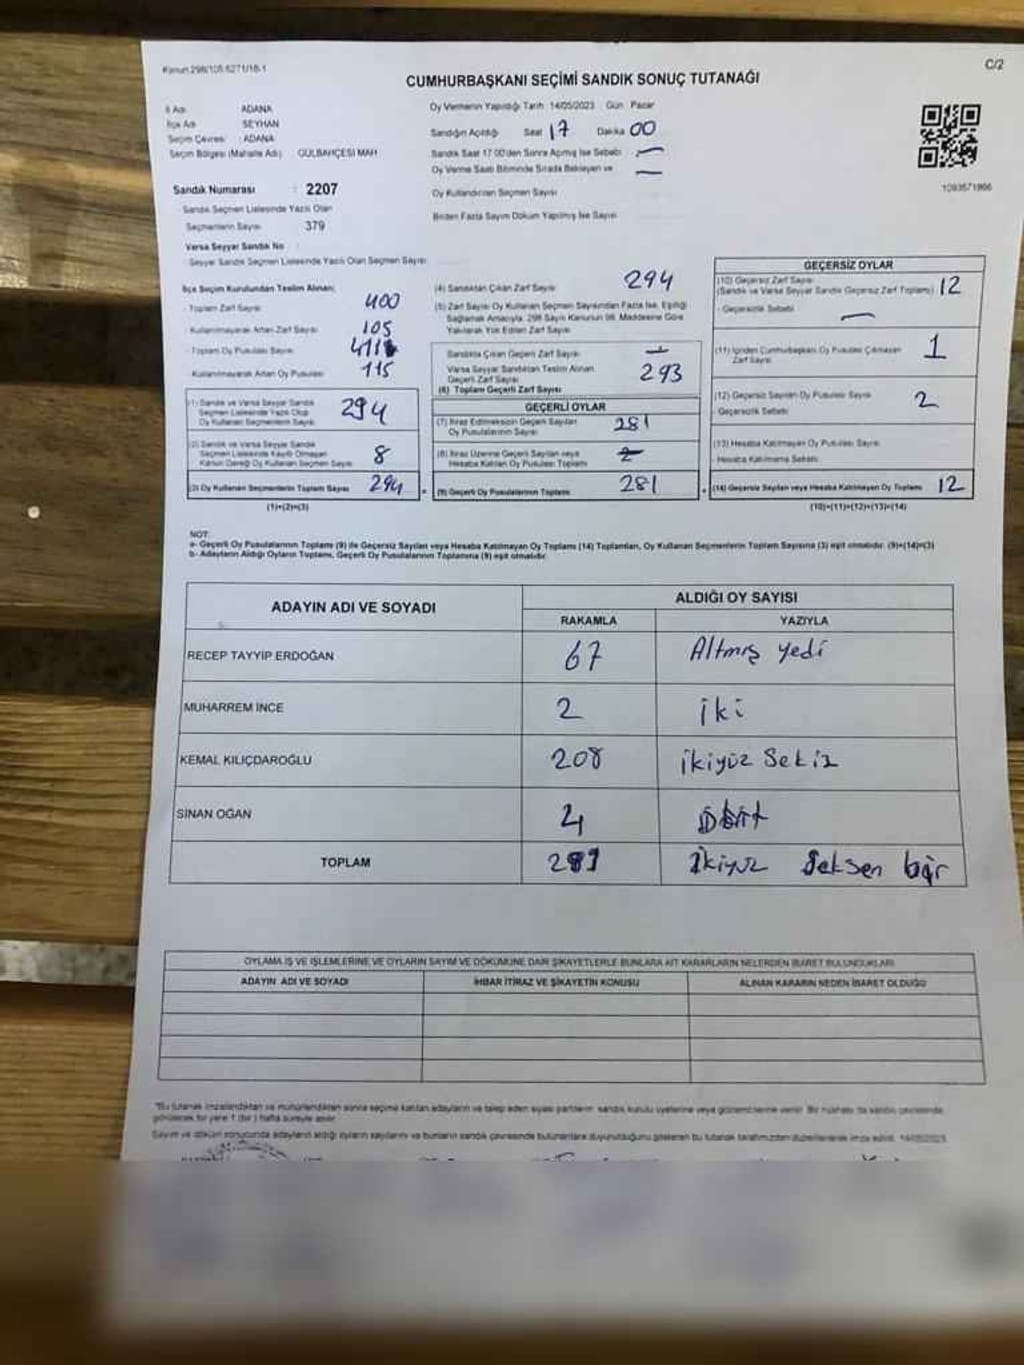 Kanun 298/105 6271/18-1
C/2
CUMHURBAŞKANI SEÇİMİ SANDIK SONUÇ TUTANAĞI
İl Adı ADANA
İlçe Adı SEYHAN
Seçim Çevresi : ADANA
Seçim Bölgesi (Mahalle Adı) GÜLBAHÇESİ MAH.
Sandık Numarası : 2207
Sandık Seçmen Listesinde Yazılı Olan
Seçmenlerin Sayısı 379
Varsa Seyyar Sandık No
Seyyar Sandık Seçmen Listesinde Yazılı Olan Seçmen Sayısı
Oy Vermenin Yapıldığı Tarih: 14/05/2023 Gün: Pazar
Sandığın Açıldığı Saat 17 Dakika 00
Sandık Saat 17.00'den Sonra Açılmış İse Sebebi —
Oy Verme Saati Bitiminde Sırada Bekleyen ve —
Oy Kullandırılan Seçmen Sayısı
Birden Fazla Sayım Döküm Yapılmış İse Sayısı
1093571966
İlçe Seçim Kurulundan Teslim Alınan:
- Toplam Zarf Sayısı 400
- Kullanılmayarak Artan Zarf Sayısı 105
- Toplam Oy Pusulası Sayısı
- Kullanılmayarak Artan Oy Pusulası 115
(1) Sandık ve Varsa Seyyar Sandık
Seçmen Listesinde Yazılı Olup
Oy Kullanan Seçmenlerin Sayısı 294
(2) Sandık ve Varsa Seyyar Sandık
Seçmen Listesinde Kayıtlı Olmayan
Kanun Gereği Oy Kullanan Seçmen Sayısı 8
(3) Oy Kullanan Seçmenlerin Toplam Sayısı 294
(1)+(2)=(3)
(4) Sandıktan Çıkan Zarf Sayısı 294
(5) Zarf Sayısı Oy Kullanan Seçmen Sayısından Fazla İse, Eşitliği
Sağlamak Amacıyla, 298 Sayılı Kanunun 98. Maddesine Göre
Yakılarak Yok Edilen Zarf Sayısı
Sandıkta Çıkan Geçerli Zarf Sayısı —
Varsa Seyyar Sandıktan Teslim Alınan
Geçerli Zarf Sayısı 293
(6) Toplam Geçerli Zarf Sayısı
GEÇERLİ OYLAR
(7) İtiraz Edilmeksizin Geçerli Sayılan
Oy Pusulalarının Sayısı 281
(8) İtiraz Üzerine Geçerli Sayılan veya
Hesaba Katılan Oy Pusulası Toplamı
(9) Geçerli Oy Pusulalarının Toplamı 281
GEÇERSİZ OYLAR
(10) Geçersiz Zarf Sayısı
(Sandık ve Varsa Seyyar Sandık Geçersiz Zarf Toplamı) 12
- Geçersizlik Sebebi —
(11) İçinden Cumhurbaşkanı Oy Pusulası Çıkmayan
Zarf Sayısı 1
(12) Geçersiz Sayılan Oy Pusulası Sayısı 2
- Geçersizlik Sebebi
(13) Hesaba Katılmayan Oy Pusulası Sayısı
- Hesaba Katılmama Sebebi
(14) Geçersiz Sayılan veya Hesaba Katılmayan Oy Toplamı 12
(10)+(11)+(12)+(13)=(14)
NOT:
a- Geçerli Oy Pusulalarının Toplamı (9) ile Geçersiz Sayılan veya Hesaba Katılmayan Oy Toplamı (14) Toplamları, Oy Kullanan Seçmenlerin Toplam Sayısına (3) eşit olmalıdır. (9)+(14)=(3)
b- Adayların Aldığı Oyların Toplamı, Geçerli Oy Pusulalarının Toplamına (9) eşit olmalıdır.
ADAYIN ADI VE SOYADI ALDIĞI OY SAYISI
RAKAMLA YAZIYLA
RECEP TAYYİP ERDOĞAN 67 Altmış yedi
MUHARREM İNCE 2 iki
KEMAL KILIÇDAROĞLU 208 ikiyüz Sekiz
SİNAN OĞAN 4 Dört
TOPLAM 281 İkiyüz Seksen bir
OYLAMA İŞ VE İŞLEMLERİNE VE OYLARIN SAYIM VE DÖKÜMÜNE DAİR ŞİKAYETLERLE BUNLARA AİT KARARLARIN NELERDEN İBARET BULUNDUKLARI
ADAYIN ADI VE SOYADI İHBAR İTİRAZ VE ŞİKAYETİN KONUSU ALINAN KARARIN NEDEN İBARET OLDUĞU
*Bu tutanak imzalandıktan ve mühürlendikten sonra seçime katılan adayların ve talep eden siyasi partilerin sandık kurulu üyelerine veya gözlemcilerine verilir. Bir nüshası da sandık çevresinde
görülecek bir yere 1 (bir) hafta süreyle asılır.
Sayım ve döküm sonucunda adayların aldığı oyların sayılarını ve bunların sandık çevresinde bulunanlara duyurulduğunu gösteren bu tutanak tarafımızdan düzenlenerek imza edildi. 14/05/2023